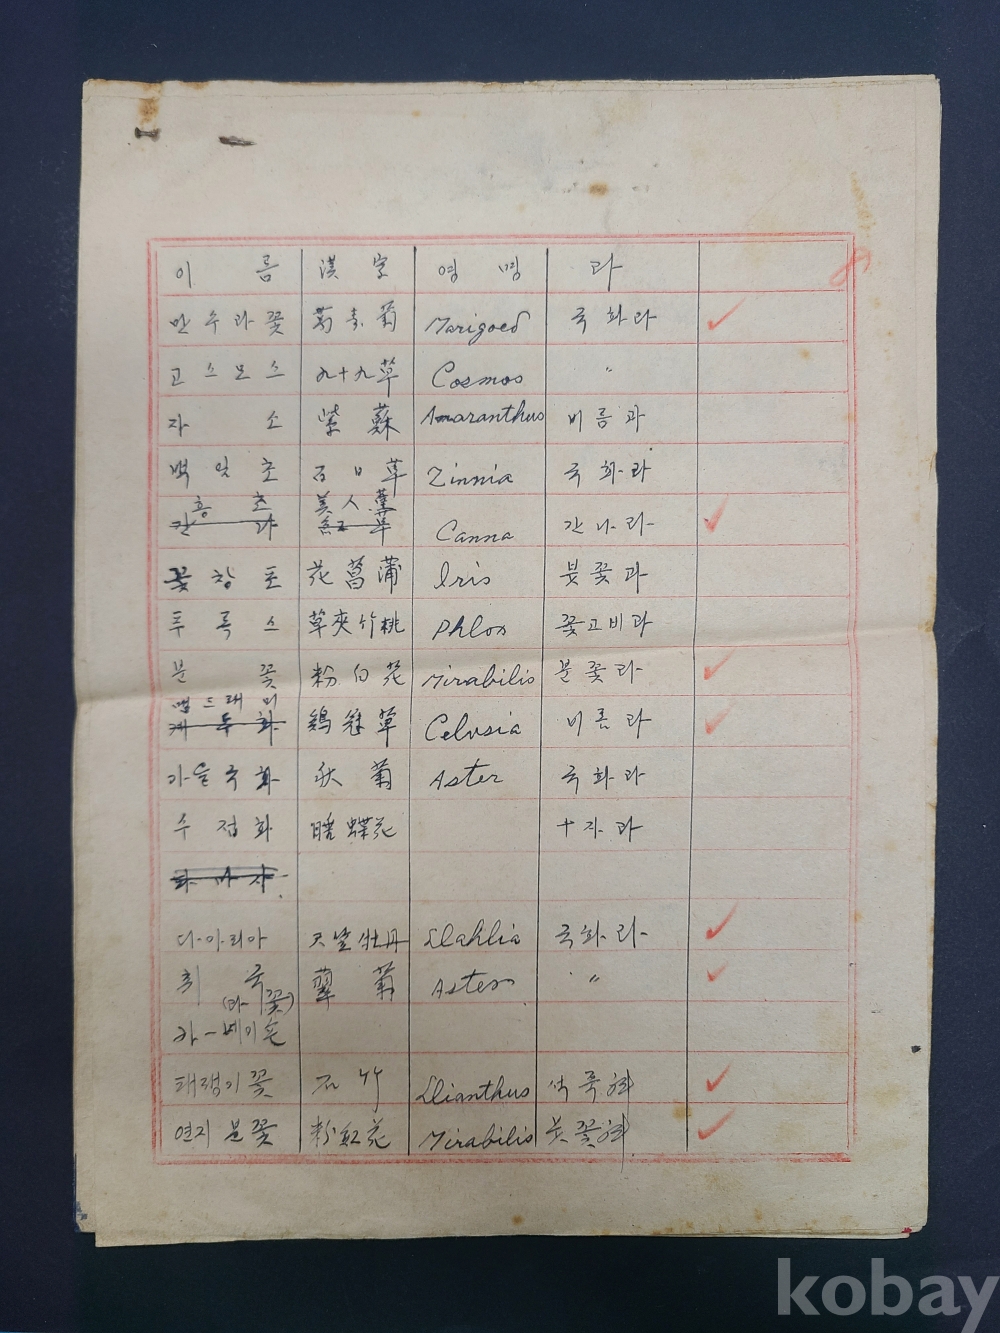 이름 漢字 영명 과
만수과꽃 萬壽菊 Marigoed 국화과
고스모스 九十九草 Cosmos 〃
자소 紫蘇 Amaranthus 비름과
백일초 百日草 Zinnia 국화과
홍초 美人蕉
칸나 紅草 Canna 간나과
꽃창포 花菖蒲 Iris 붓꽃과
투록스 草夾竹桃 Phlox 꽃고비과
분꽃 粉白花 Mirabilis 분꽃과
맨드래미
계두화 鷄冠草 Celusia 비름과
가을국화 秋菊 Aster 국화과
수접화 蝶花 十자과
다아리아 天竺牡丹 Dahlia 국화과
취국 翠菊 Aster 〃
(과꽃)
카ー베이숀
패랭이꽃 石竹 Dianthus 석죽科
연지분꽃 粉紅花 Mirabilis 분꽃科
kobay